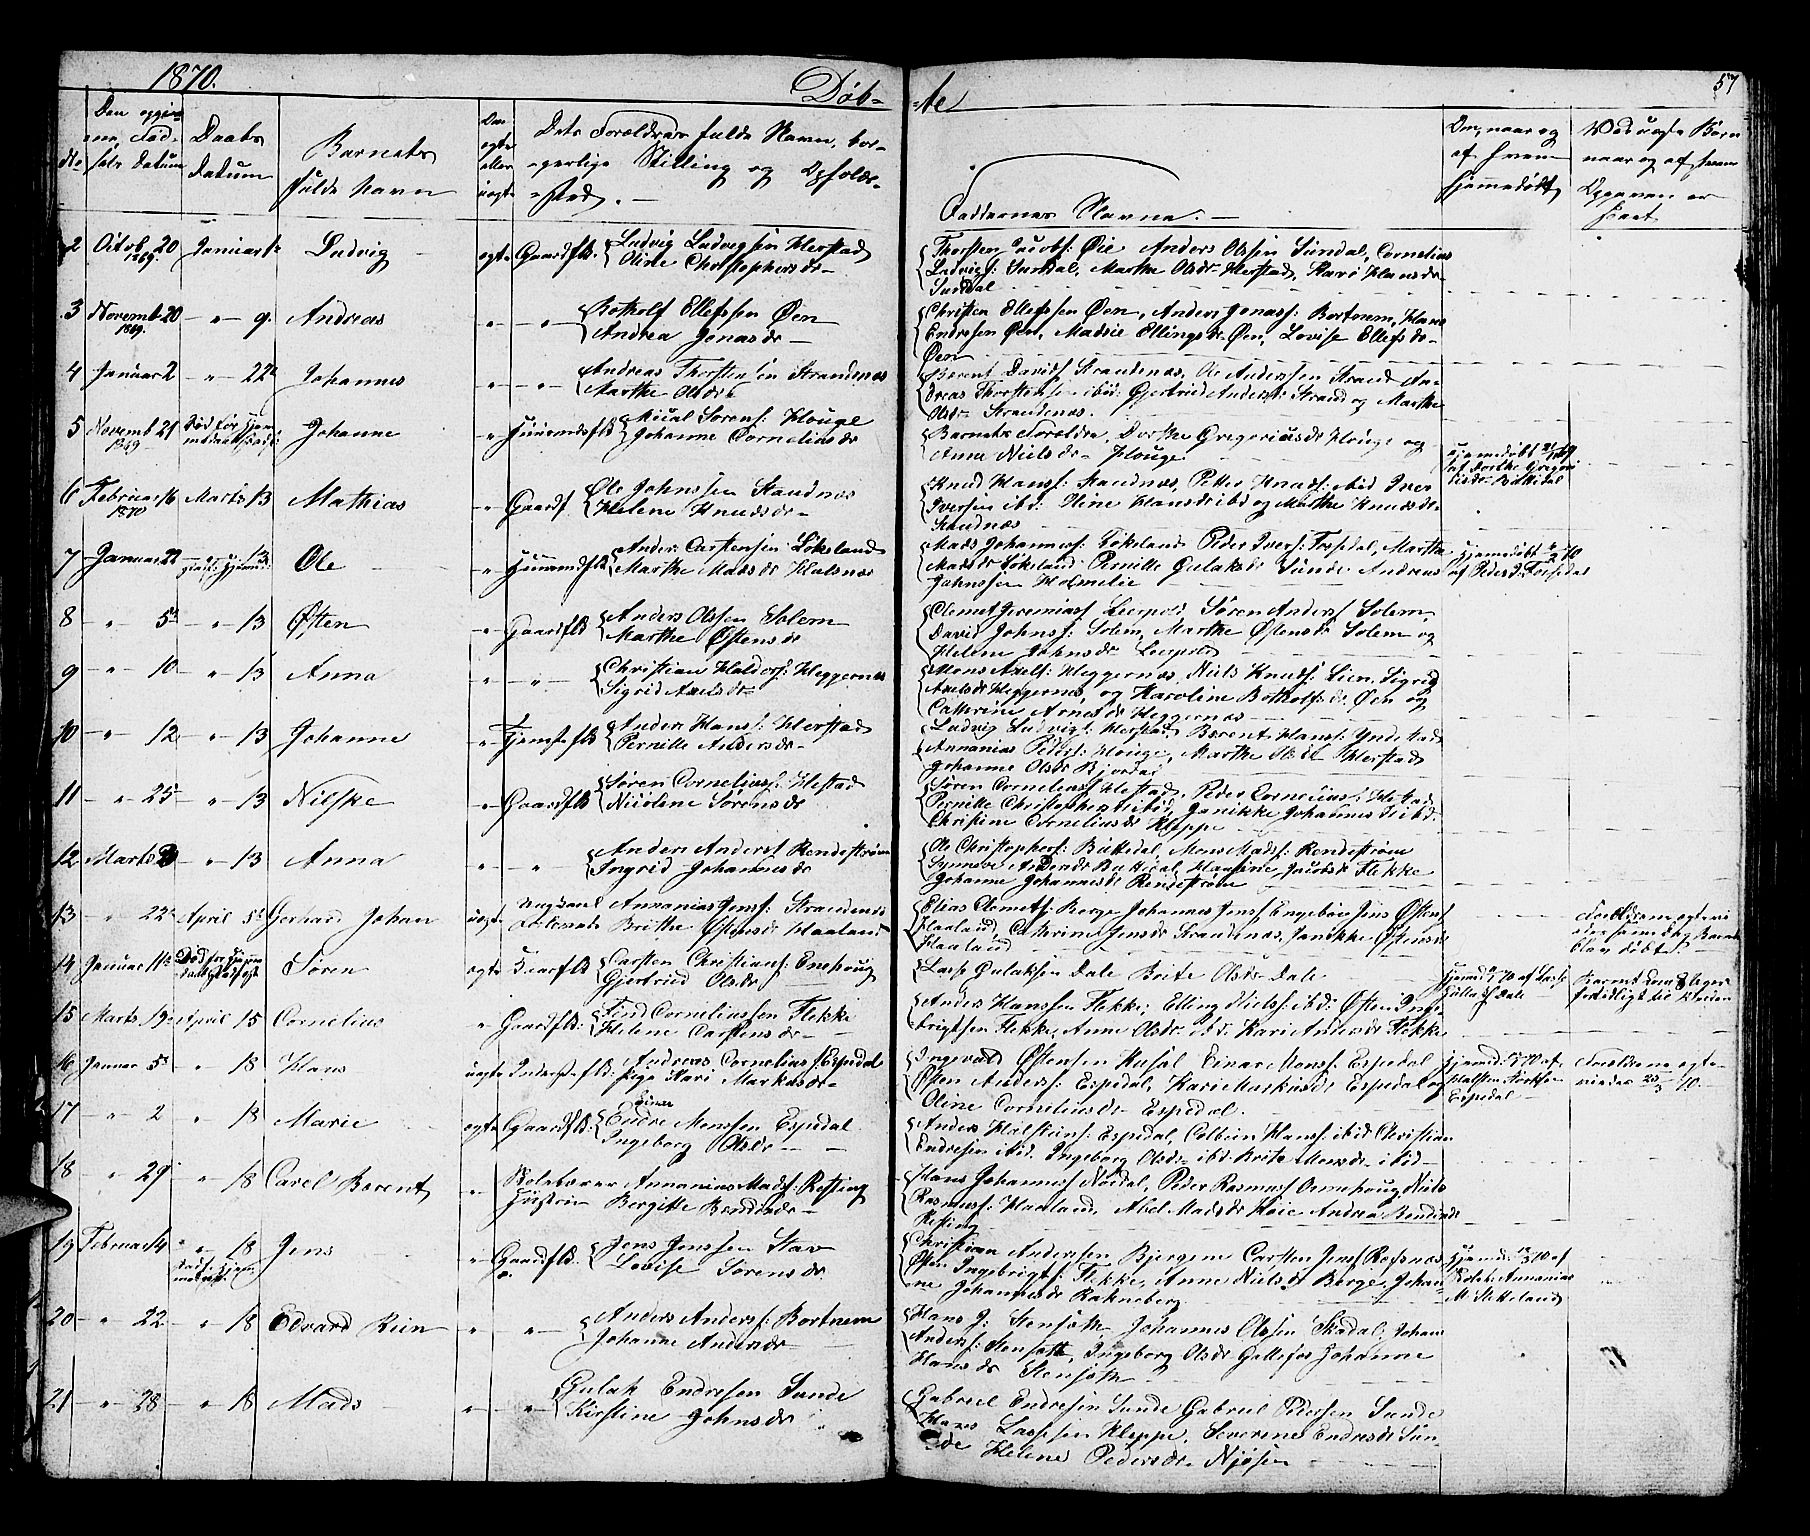 1870.
Døb-
-te
57
Den opgiv-
ne Fød-
sels Datum
Daabs
Datum
Barnets
fulde Navn
Om
egte
eller
uegte
Dets Forældres fulde Navn, bor-
gerlige Stilling og Opholds-
-sted. -
Faddernes Navne. -
Om, naar og
af hvem
hjemmedøbt
Ved uegte Børn
naar og af hvem
Opgaven er
skeet
2 Octob 20 1869. Januar 1 Ludvig egte Gaardflk. Ludvig Ludvigsen Herstad
Oline Christophersdr-
Thorsten Jacobs: Øie Anders Olssen Sundal, Cornelius
Ludvigs: Sundal, Marthe Olsdr Herstad, Kari Hansdr-
Sundal
3 Novemb 20 1869. " 9. Andreas " " Botholf Ellefssen Øen
Andrea Jonasdr-
Christen Ellefssen Øen, Anders Jonass: Bortnem, Hans
Endresen Øen, Madsie Ellingsdr. Øen, Lovise Ellefsdr-
Øen
4 Januar 2 " 22 Johannes " " Andreas Thorstensen Strandenæs
Marthe Olsdr
Berent Davids Strandenæs, Ole Anderssen Strand An-
dreas Thorstensen ibid: Gjertrud Andersdr Strand og Marthe
Olsdr Strandenæs.
5 Novemb 21 1869 Død før Hjem-
Johanne " Huusmdsflk Sørens: Houge
Johanne Corneliusdr
Barnets Forældre, Dorthe Gregoriusdr Houge og
Anne Nielsdr- Houge.
hjemmedøbt 21/11 69
af Dorthe Gregori
usdr
6 Februar 16 1870 Marts 13 Mathias " Gaardf Ole Johnssen Sandnæs
Helene Knudsdr-
Knud Hanss: Sandnæs, Peter Knuds: ibid Iver
Iversen ibid: Oline Hansdr ibid og Marthe Knudsdr-
Sandnæs
7 Januar 22 " 13 Ole " Huusmdflk Anders Carstensen Løkeland
Marthe Madsdr Hatsnæs
Mads Johanness: Løkeland Peder Ivers: Forsdal, Marthe
Madsdr Løkeland Pernille Gulaksdr Sunde Andreas
Johnssen Holmelie
Hjemmedøbt 70
af Peder I:
8 " 5 " 13 Østen " Gaardflk Anders Olssen Solem
Marthe Østensdr
Clemet Jeremiass Leirpold, Søren Anderss Solem,
David Johnss: Solem, Marthe Østensdr Solem og
Helene Johnsdr Leirpold
9 " 10 " 13 Anna " " Christian Haldors: Heggernes
Sigrid Axelsdr-
Mons Axels: Heggernæs, Niels Knuds: Lien, Sigrid
Axelsdr Heggernæs, og Karoline Botholfsdr. Øen og
Cathrine Arnesdr Heggernæs
10 " 12 " 13 Johanne " Tjenstflk Anders Hans: Herstad
Pernille Andersdr-
Ludvig Ludvigs: Herstad, Berent Hans: Yndestad
Annanias Peders: Houge, Marthe Olsdr Herstad
Johanne Olsdr Bjordal
11 " 25 " 13 Nilske " Gaardflk Søren Corneliuss: Hestad
Nicoline Sørensdr
Søren Corneliuss: Hestad, Peder Corneliuss: Hestad
Pernille Christophersdr ibid, Janikke Johannesdr ibid.
Christine Corneliusdr Kleppe
12 Marts " 13 Anna " " Anders Anders: Rendestrøm
Ingrid Johannesdr
Ole Christophers: Bukkedal, Mons Mads: Rendestrøm
Synneve Andersdr Bukkedal, Hansine Jacobsdr Flekke
Johanne Johannesdr Rendestrøm
13 " 22 April 5 Gerhard Johan uegt Annanias Jenss: Strandenæs
Brithe Østensdr Haaland
Elias Clemets: Berge Johannes Jenss Engebøe Jens Østens
Haaland, Cathrine Jensdr Strandenæs, Janikke Østensdr
Haaland
Forældrene egtevi
ede samme dag Barnet
blev døbt.
14 Januar 11 Død før Søren egte Carsten Christians: Enehoug
Gjertrud Olsdr
Lasse Gulaksen Dale Brite Olsdr Dale
Hjemd 70 af Lasse
Dale
15 Marts 19 April 15 Cornelius " Gaardflk: Find Corneliussen Flekke
Helene Carstensdr-
Anders Hanssen Flekke, Elling Niels: ibid: Østen Inge-
brigtsen Flekke, Anne Olsdr ibid. Kari Andersdr Flekke
16 Januar 5 " 18 Hans uegte Andreas Cornelius Espedal
pige Kari Markusdr-
Ingevald Østensen Einar Mons: Espedal
Østen Anders: Espedal, Kari Markusdr Espedal og
Oline Corneliusdr Espedal.
Hjemd: 70 af
Halsten
Espedal
Forældrene egte-
viede
17 " 2 " 18 Marie egte Gaardflk: Einar
Endre Monsen Espedal
Ingeborg Olsdr
Anders Halstens: Espedal, Colbein Hans: ibid Christian
Endresen ibid. Ingeborg Olsdr ibid. Brite Monsdr ibid
18 " 29 " 18 Carel Berent " Skolelærer Annanias Mads: Refsing
Hustru Bergitte Bendixdr-
Hans Johannes Nordal, Peder Rasmus Ormehoug Niels
Rasmuss: Haaland, Abel Madsdr Høie Andrea Bendixdr
Refsing
19 Februar 14 " 18 Jens " Gaardflk. Jens Jenssen Stav
Lovise Sørensdr
Christian Andersen Bjergene Carsten Jens Refsnæs
Østen Ingebrigts: Flekke, Anne Nielsdr Berge, Johan-
ne Johannesdr Rakneberg
Hjemd: 70 af
Annanias
M. Stetteland
20 " 22 " 18 Edvard Rein " " Anders Anders: Bortnem
Johanne Andersdr-
Hans J: Stensæth, Johannes Olssen Skodal, Johan
Anders: Stensæth, Ingeborg Olsdr Gallefos Johanne
Hansdr Stensæth
21 " 28 " 18 Mads " " Gulak Endresen Sunde
Kirstine Johnsdr
Gabriel Endresen Sunde Gabriel Pedersen Sunde
Hans Lassesen Kleppe, Severine Endresdr Sun-
de Helene Pedersdr- Njøsen